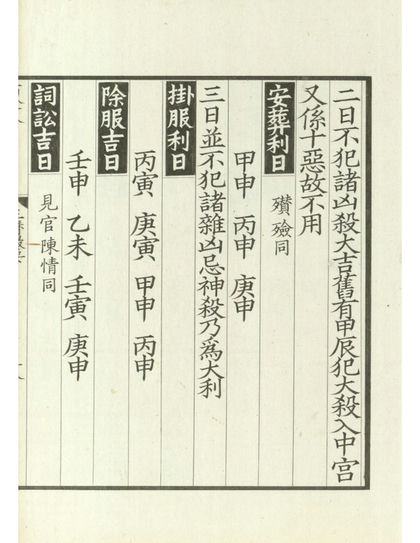 二日不犯諸凶殺大吉舊有甲辰犯大殺入中宮
又係十惡故不用
安葬利日 殯殮同
甲申 丙申 庚申
三日並不犯諸雜凶忌神殺乃爲大利
掛服利日
丙寅 庚寅 甲申 丙申
除服吉日
壬申 乙未 壬寅 庚申
詞訟吉日 見官陳情同